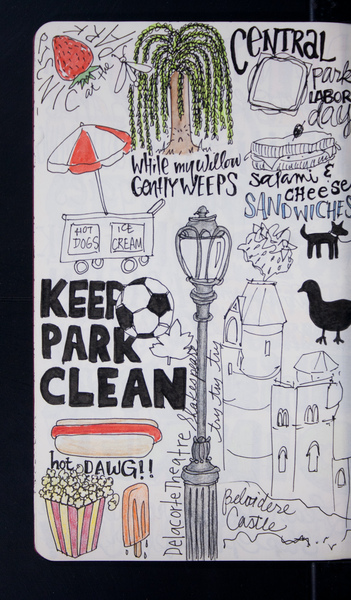 PICNIC
at the
CENTRAL
park
LABOR
day
While my Willow
GENTLY WEEPS
salami &
CHEESE
SANDWICHES
HOT
DOGS
ICE
CREAM
KEEP
PARK
CLEAN
Delacorte Theatre
Shakespeare
try try try
hot DAWG!!
Belvidere
Castle